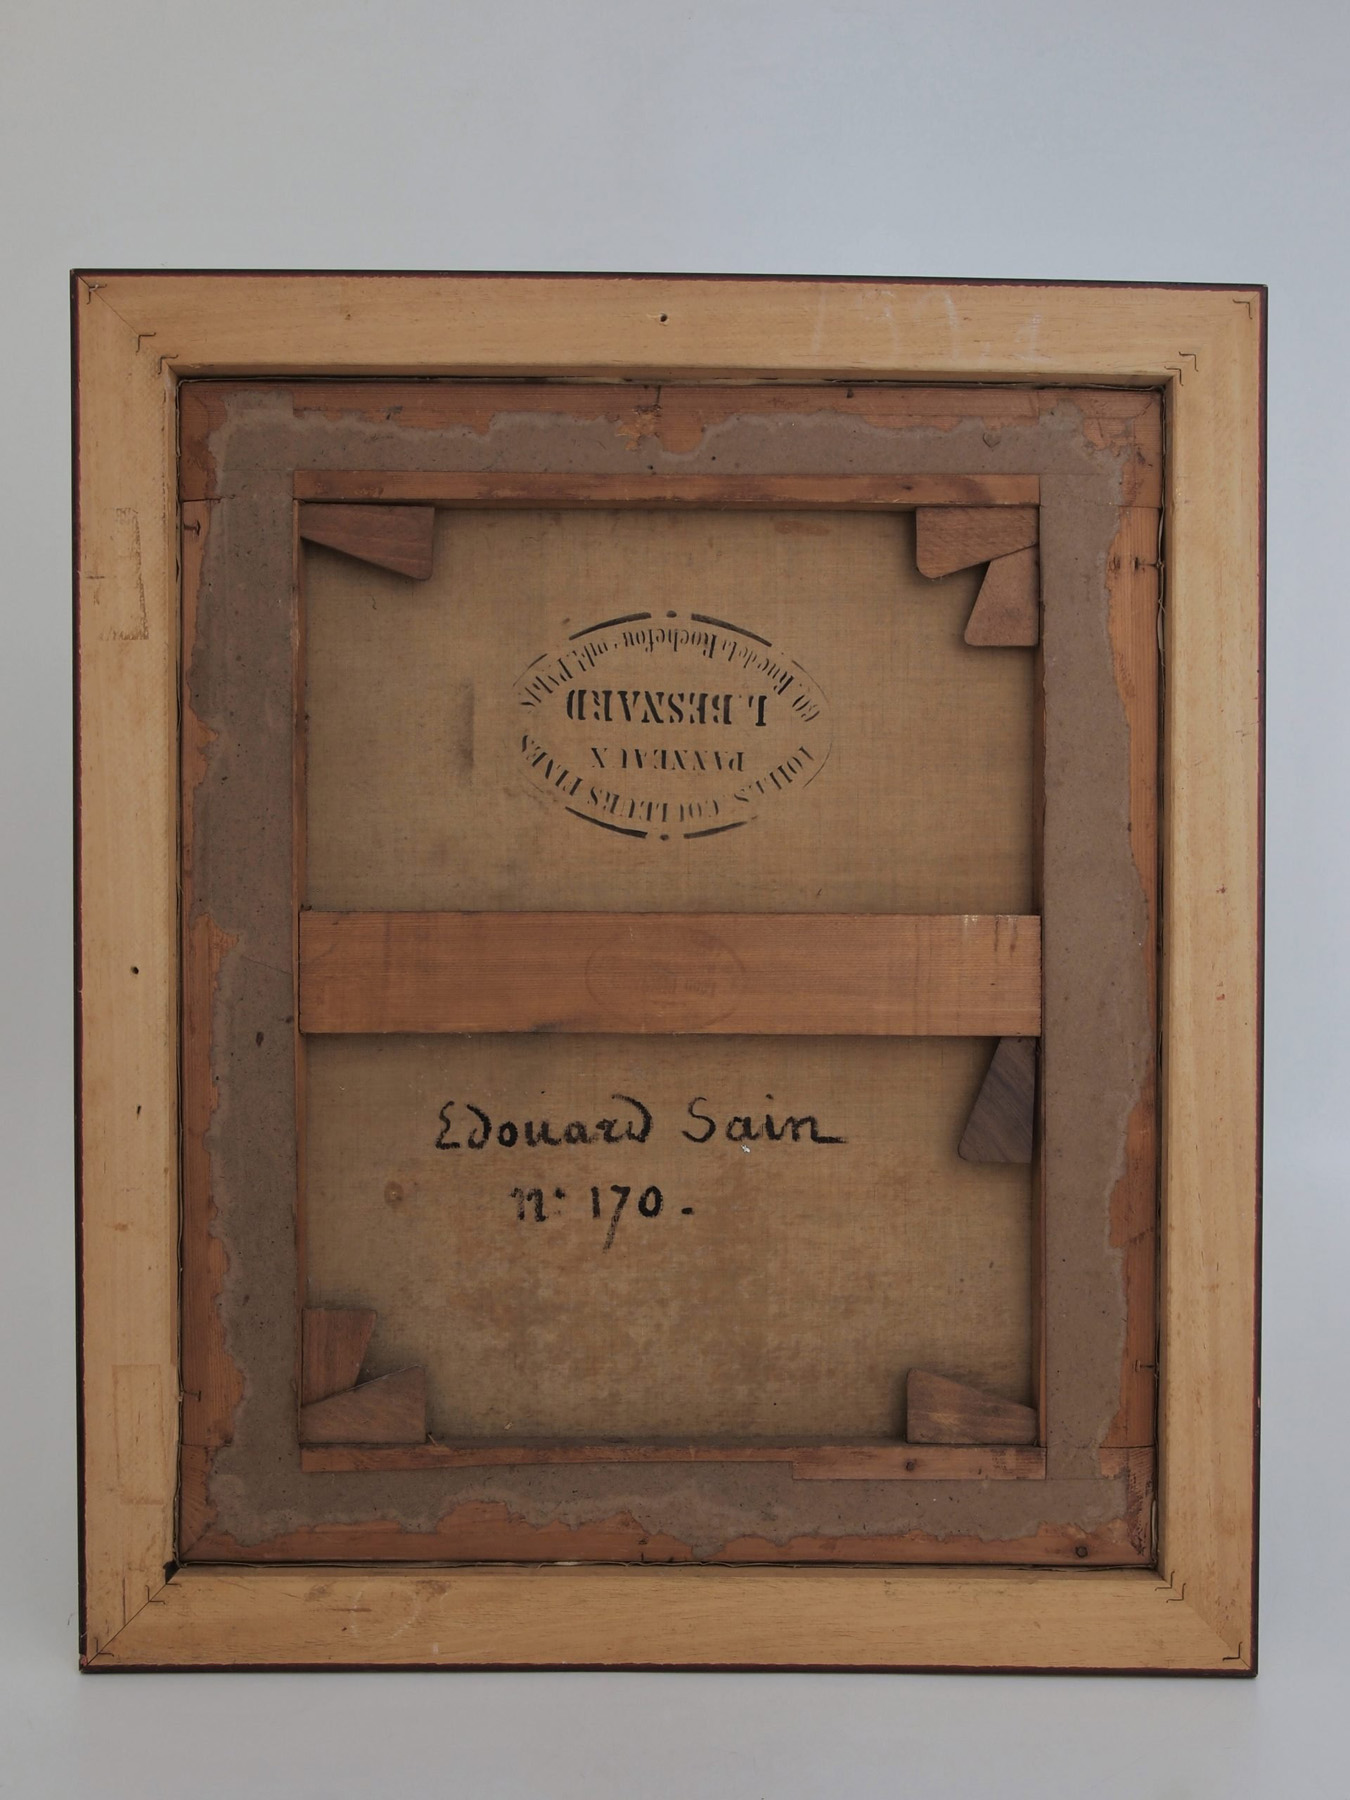 TOILES, COULEURS FINES
PANNEAUX
L. BESNARD
60, Rue de la Rochefoucauld, PARIS
Edouard Sain
n° 170.